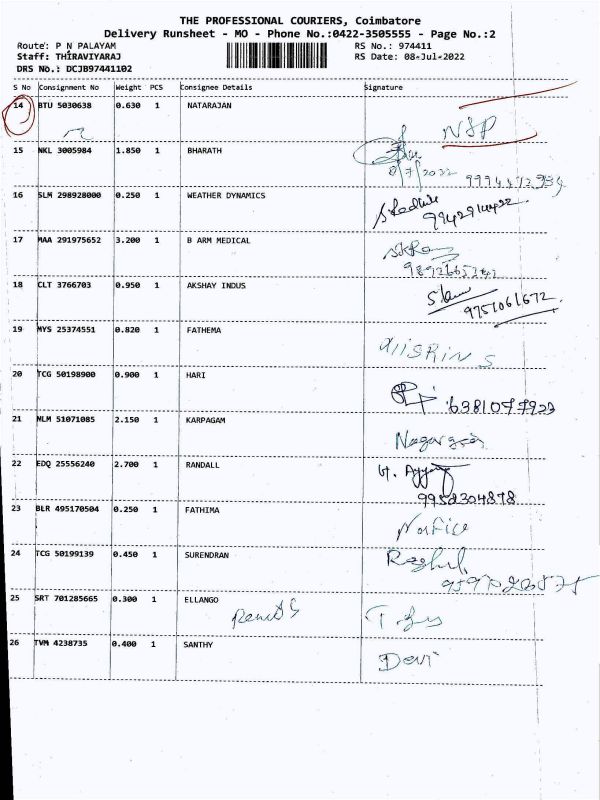 THE PROFESSIONAL COURIERS, Coimbatore
Delivery Runsheet - MO - Phone No.:0422-3505555 - Page No.:2
Route: P N PALAYAM RS No.: 974411
Staff: THIRAVIYARAJ RS Date: 08-Jul-2022
DRS No.: DCJB97441102
S No Consignment No Weight PCS Consignee Details Signature
14 BTU 5030638 0.630 1 NATARAJAN
NSP
15 NKL 3005984 1.850 1 BHARATH
8/7/2022
16 SLM 298928000 0.250 1 WEATHER DYNAMICS
17 MAA 291975652 3.200 1 B ARM MEDICAL
18 CLT 3766703 0.950 1 AKSHAY INDUS
9751061672
19 MYS 25374551 0.820 1 FATHEMA
20 TCG 50198900 0.900 1 HARI
6381077923
21 NLM 51071085 2.150 1 KARPAGAM
22 EDQ 25556240 2.700 1 RANDALL
9952304878
23 BLR 495170504 0.250 1 FATHIMA
24 TCG 50199139 0.450 1 SURENDRAN
25 SRT 701285665 0.300 1 ELLANGO
26 TVM 4238735 0.400 1 SANTHY
Devi